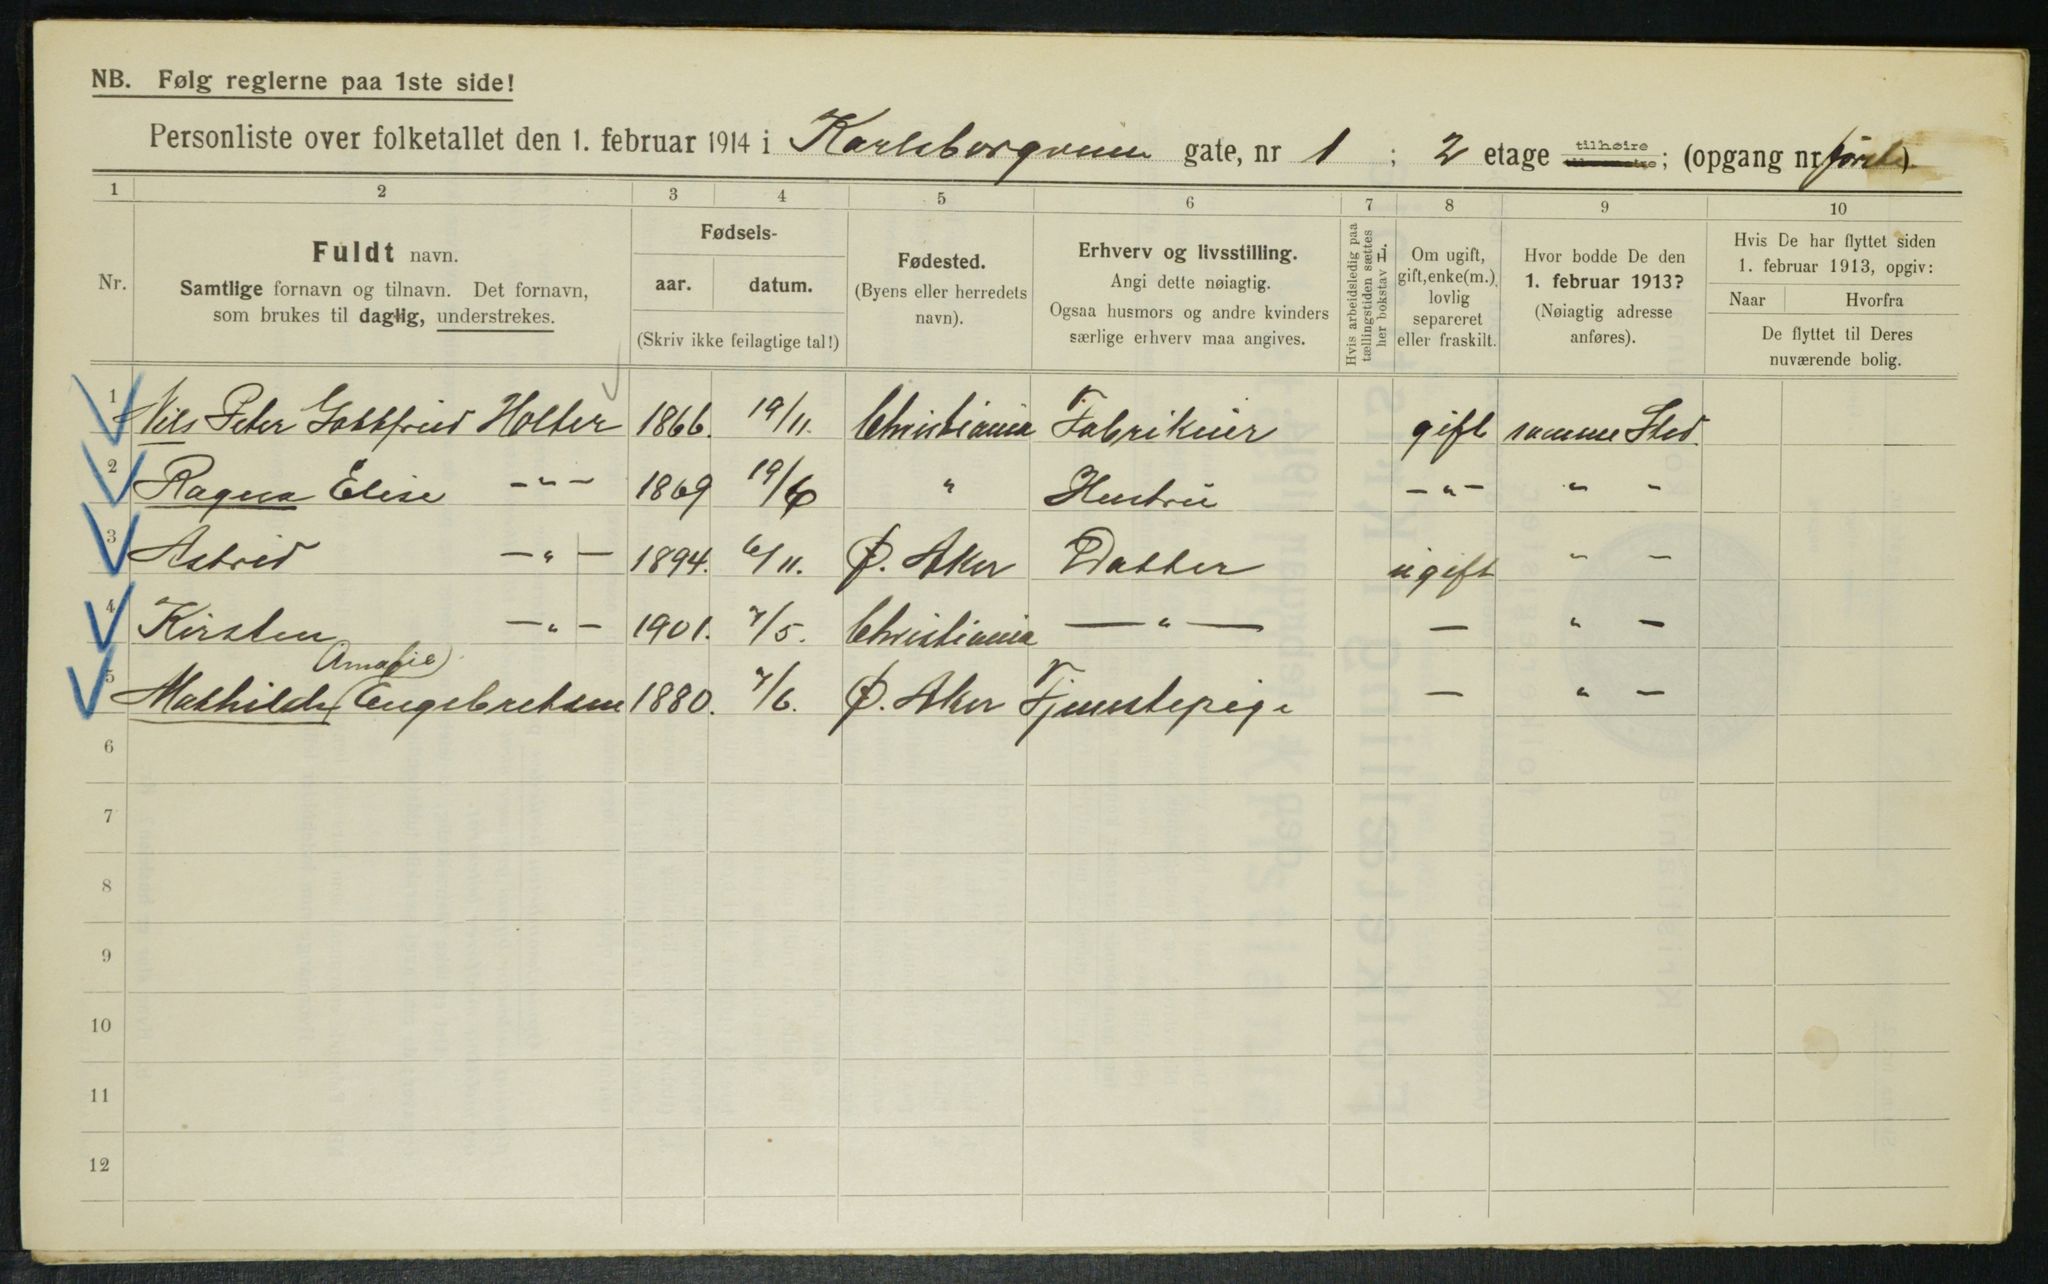 NB. Følg reglerne paa 1ste side!
Personliste over folketallet den 1. februar 1914 i Karlsborgveien gate, nr 1; 2 etage tilhøire tilvenstre; (opgang nr første)
1 2 3 4 5 6 7 8 9 10
Nr.
Fuldt navn.
Samtlige fornavn og tilnavn. Det fornavn,
som brukes til daglig, understrekes.
Fødsels-
aar. datum.
(Skriv ikke feilagtige tal!)
Fødested.
(Byens eller herredets
navn).
Erhverv og livsstilling.
Angi dette nøiagtig.
Ogsaa husmors og andre kvinders
særlige erhverv maa angives.
Hvis arbeidsledig paa
tællingstiden sættes
her bokstav L.
Om ugift,
gift, enke(m.),
lovlig
separeret
eller fraskilt.
Hvor bodde De den
1. februar 1913?
(Nøiagtig adresse
anføres).
Hvis De har flyttet siden
1. februar 1913, opgiv:
Naar Hvorfra
De flyttet til Deres
nuværende bolig.
1 Nils Peter Gottfried Holter 1866. 19/11. Christiania Fabrikeier gift samme Sted.
2 Ragna Elise –"– 1869 19/6 " Hustru –"– " "
3 Astrid –"– 1894. 6/11. Ø. Aker Datter ugift " –
4 Kirsten –"– 1901. 7/5. Christiania –"– – " –
5 Mathilde (Amalie) Engebretsen 1880. 7/6. Ø. Aker Tjenestepige – " –
6
7
8
9
10
11
12